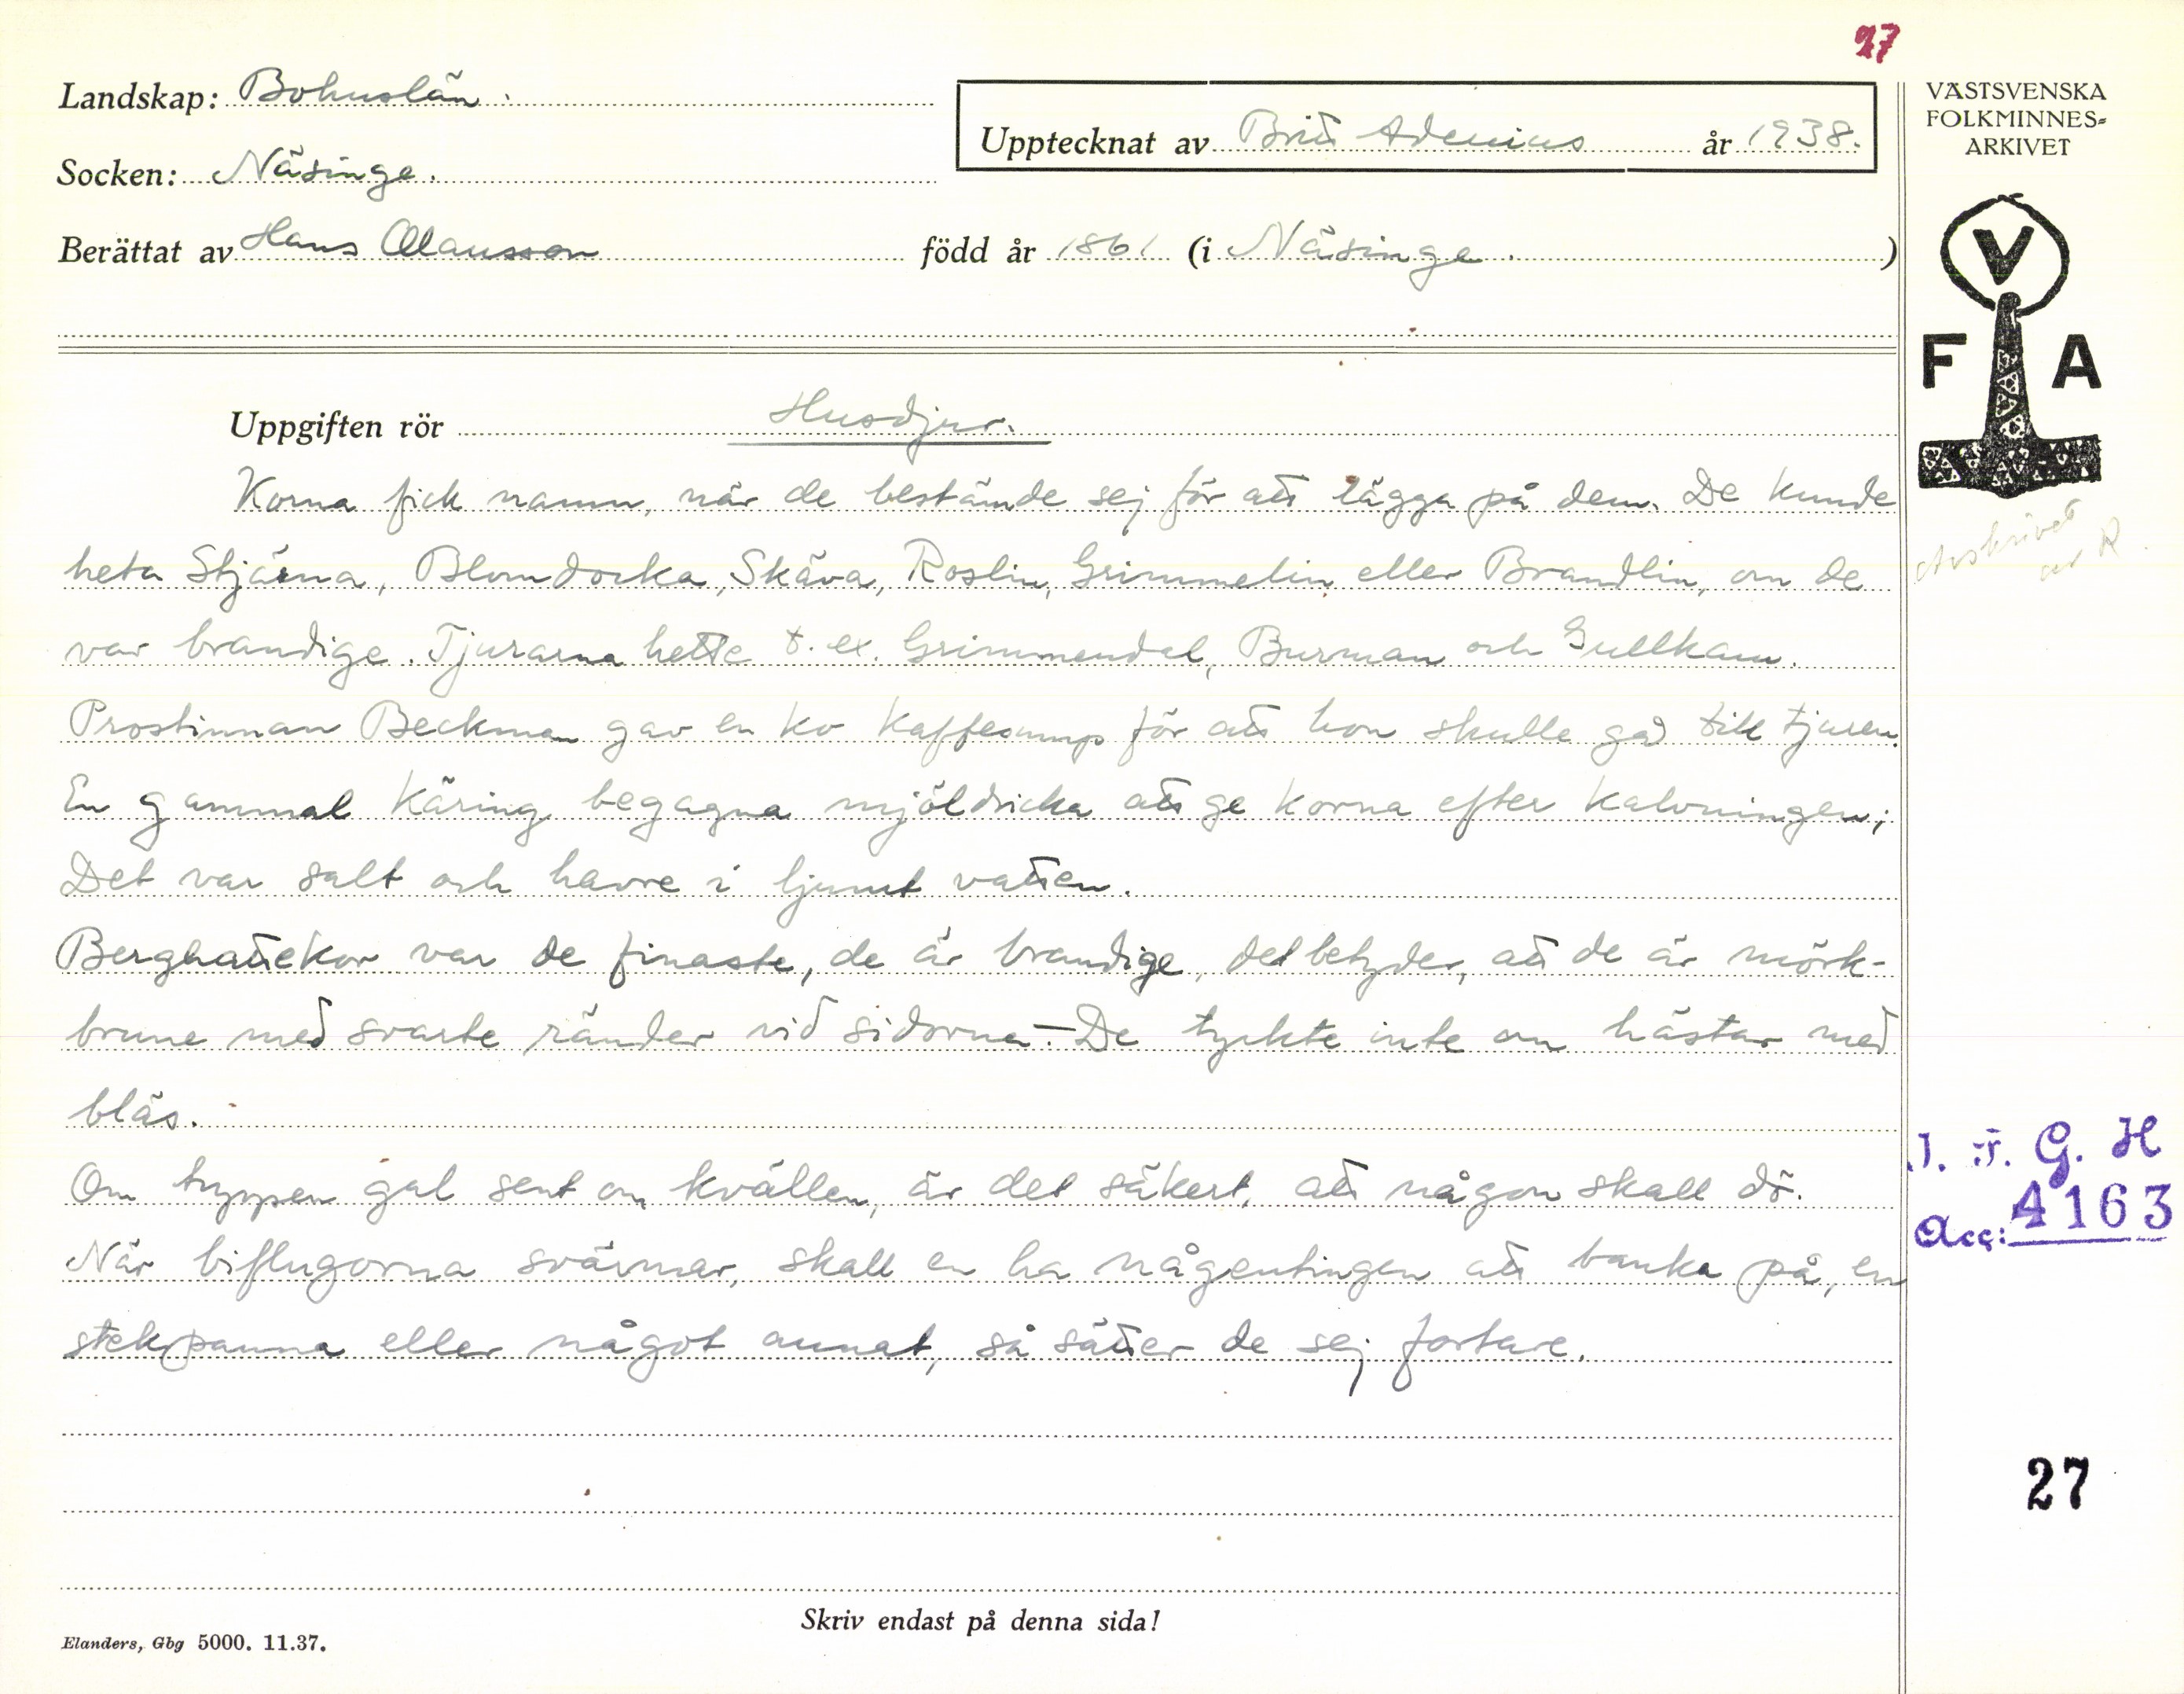 27
Landskap: Bohuslän.
Socken: Näsinge.
Berättat av Hans Olausson född år 1861 (i Näsinge.)
Upptecknat av Britt Adenius år 1938.
VÄSTSVENSKA
FOLKMINNES-
ARKIVET
V
F A
Uppgiften rör Husdjur.
Korna fick namn, när de bestämde sej för att lägga på dem. De kunde
heta Stjärna, Blomdocka, Skäva, Roslin, Grimmelin eller Brandlin, om de
var brandige. Tjurarna hette t. ex. Grimmendal, Burman och Gullkam.
Prostinnan Beckman gav en ko kaffesump för att hon skulle gå till tjuren.
En gammal käring begagna mjöldricka att ge korna efter kalvningen;
Det var salt och havre i ljumt vatten.
Berghattekor var de finaste, de är brandige, det betyder, att de är mörk-
brune med svarte ränder vid sidorna. – De tyckte inte om hästar med
bläs.
Om tuppen gal sent om kvällen, är det säkert, att någon skall dö.
När biflugorna svärmar, skall en ha någentingen att banka på, en
stekpanna eller något annat, så sätter de sej fortare.
Avskrivet
av R
I. F. G. H
Acc: 4163
27
Skriv endast på denna sida!
Elanders, Gbg 5000. 11.37.